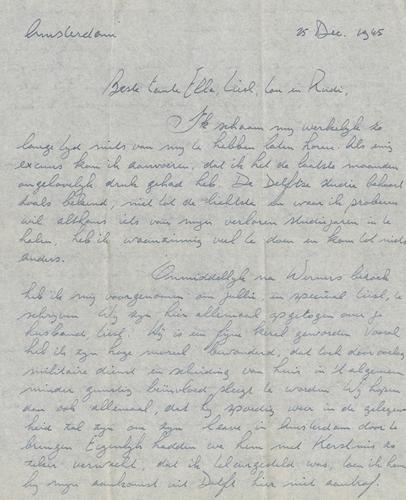 Amsterdam 25 Dec. 1945
Beste tante Ella, Liesl, Lou en Rudi,
Ik schaam mij werkelijk zo
lange tijd niets van mij te hebben laten horen. Als enig
excuus kan ik aanvoeren, dat ik het de laatste maanden
ongelooflijk druk gehad heb. De Delftse studie behoort
zoals bekend, niet tot de lichtste en waar ik proberen
wil althans iets van mijn verloren studiejaren in te
halen, heb ik waanzinnig veel te doen en kom tot niets
anders.
Onmiddellijk na Werners bezoek
heb ik mij voorgenomen om jullie, in speciaal Liesl, te
schrijven. Wij zijn hier allemaal opgetogen over je
husband, Liesl. Hij is een fijne kerel geworden. Vooral
heb ik zijn hoge moreel bewonderd, dat toch door oorlog
militaire dienst en scheiding van huis in 't algemeen
minder gunstig beïnvloed pleegt te worden. Wij hopen
dan ook allemaal, dat hij spoedig weer in de gelegen
heid zal zijn om zijn leave in Amsterdam door te
brengen. Eigenlijk hadden we hem met Kerstmis al
zeker verwacht, dat ik teleurgesteld was, toen ik hem
bij mijn aankomst uit Delft hier niet aantrof.